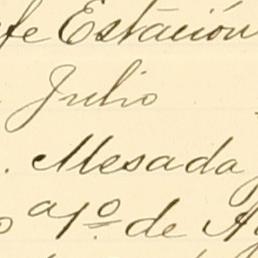 fe Estación
Julio
. Mesada
a 1º de A